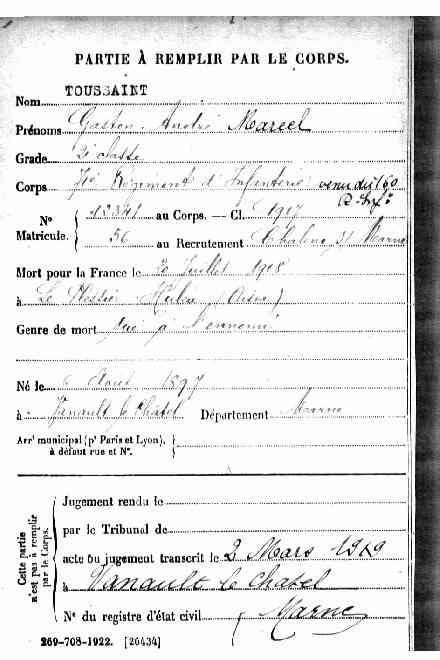 PARTIE À REMPLIR PAR LE CORPS.
Nom TOUSSAINT
Prénoms Gaston André Marcel
Grade 2e classe
Corps Régiment d'Infanterie venu du 160
R. Inf:
N° Matricule. { au Corps. — Cl. 1917
56 au Recrutement Chalons s/ Marne
Mort pour la France le 20 Juillet 1918
à Le Plessis Huleu (Oise)
Genre de mort Tué à l'ennemi
Né le 6 Aout 1897
à Vanault le Chatel Département Marne
Arrt municipal (pr Paris et Lyon), à défaut rue et N°. {
Cette partie n'est pas à remplir par le Corps.
Jugement rendu le
par le Tribunal de
acte ou jugement transcrit le 2 Mars 1919
à Vanault le Chatel
N° du registre d'état civil Marne
269-708-1922. [26434]